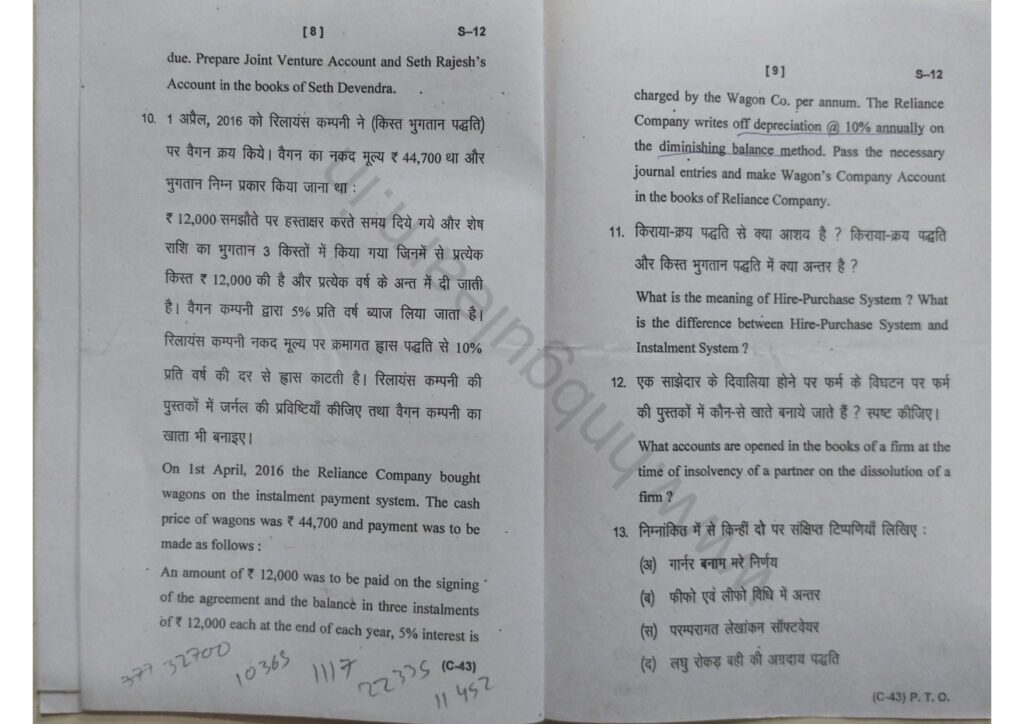 [ 8 ]
S–12
due. Prepare Joint Venture Account and Seth Rajesh's
Account in the books of Seth Devendra.
10. 1 अप्रैल, 2016 को रिलायंस कम्पनी ने (किस्त भुगतान पद्धति)
पर वैगन क्रय किये। वैगन का नकद मूल्य ₹ 44,700 था और
भुगतान निम्न प्रकार किया जाना था :
₹ 12,000 समझौते पर हस्ताक्षर करते समय दिये गये और शेष
राशि का भुगतान 3 किस्तों में किया गया जिनमें से प्रत्येक
किस्त ₹ 12,000 की है और प्रत्येक वर्ष के अन्त में दी जाती
है। वैगन कम्पनी द्वारा 5% प्रति वर्ष ब्याज लिया जाता है।
रिलायंस कम्पनी नकद मूल्य पर क्रमागत ह्रास पद्धति से 10%
प्रति वर्ष की दर से ह्रास काटती है। रिलायंस कम्पनी की
पुस्तकों में जर्नल की प्रविष्टियाँ कीजिए तथा वैगन कम्पनी का
खाता भी बनाइए।
On 1st April, 2016 the Reliance Company bought
wagons on the instalment payment system. The cash
price of wagons was ₹ 44,700 and payment was to be
made as follows :
An amount of ₹ 12,000 was to be paid on the signing
of the agreement and the balance in three instalments
of ₹ 12,000 each at the end of each year, 5% interest is
(C-43)
377 32700
10365
1117
22335
11452
[ 9 ]
S–12
charged by the Wagon Co. per annum. The Reliance
Company writes off depreciation @ 10% annually on
the diminishing balance method. Pass the necessary
journal entries and make Wagon's Company Account
in the books of Reliance Company.
11. किराया-क्रय पद्धति से क्या आशय है ? किराया-क्रय पद्धति
और किस्त भुगतान पद्धति में क्या अन्तर है ?
What is the meaning of Hire-Purchase System ? What
is the difference between Hire-Purchase System and
Instalment System ?
12. एक साझेदार के दिवालिया होने पर फर्म के विघटन पर फर्म
की पुस्तकों में कौन-से खाते बनाये जाते हैं ? स्पष्ट कीजिए।
What accounts are opened in the books of a firm at the
time of insolvency of a partner on the dissolution of a
firm ?
13. निम्नांकित में से किन्हीं दो पर संक्षिप्त टिप्पणियाँ लिखिए :
(अ) गार्नर बनाम मरे निर्णय
(ब) फीफो एवं लीफो विधि में अन्तर
(स) परम्परागत लेखांकन सॉफ्टवेयर
(द) लघु रोकड़ बही की अग्रदाय पद्धति
(C-43) P. T. O.